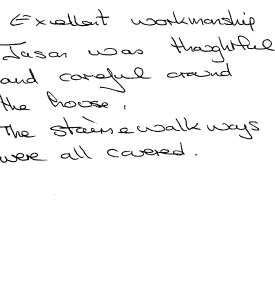 Excellent workmanship
Jason was thoughtful
and careful around
the house.
The stairs & walkways
were all covered.